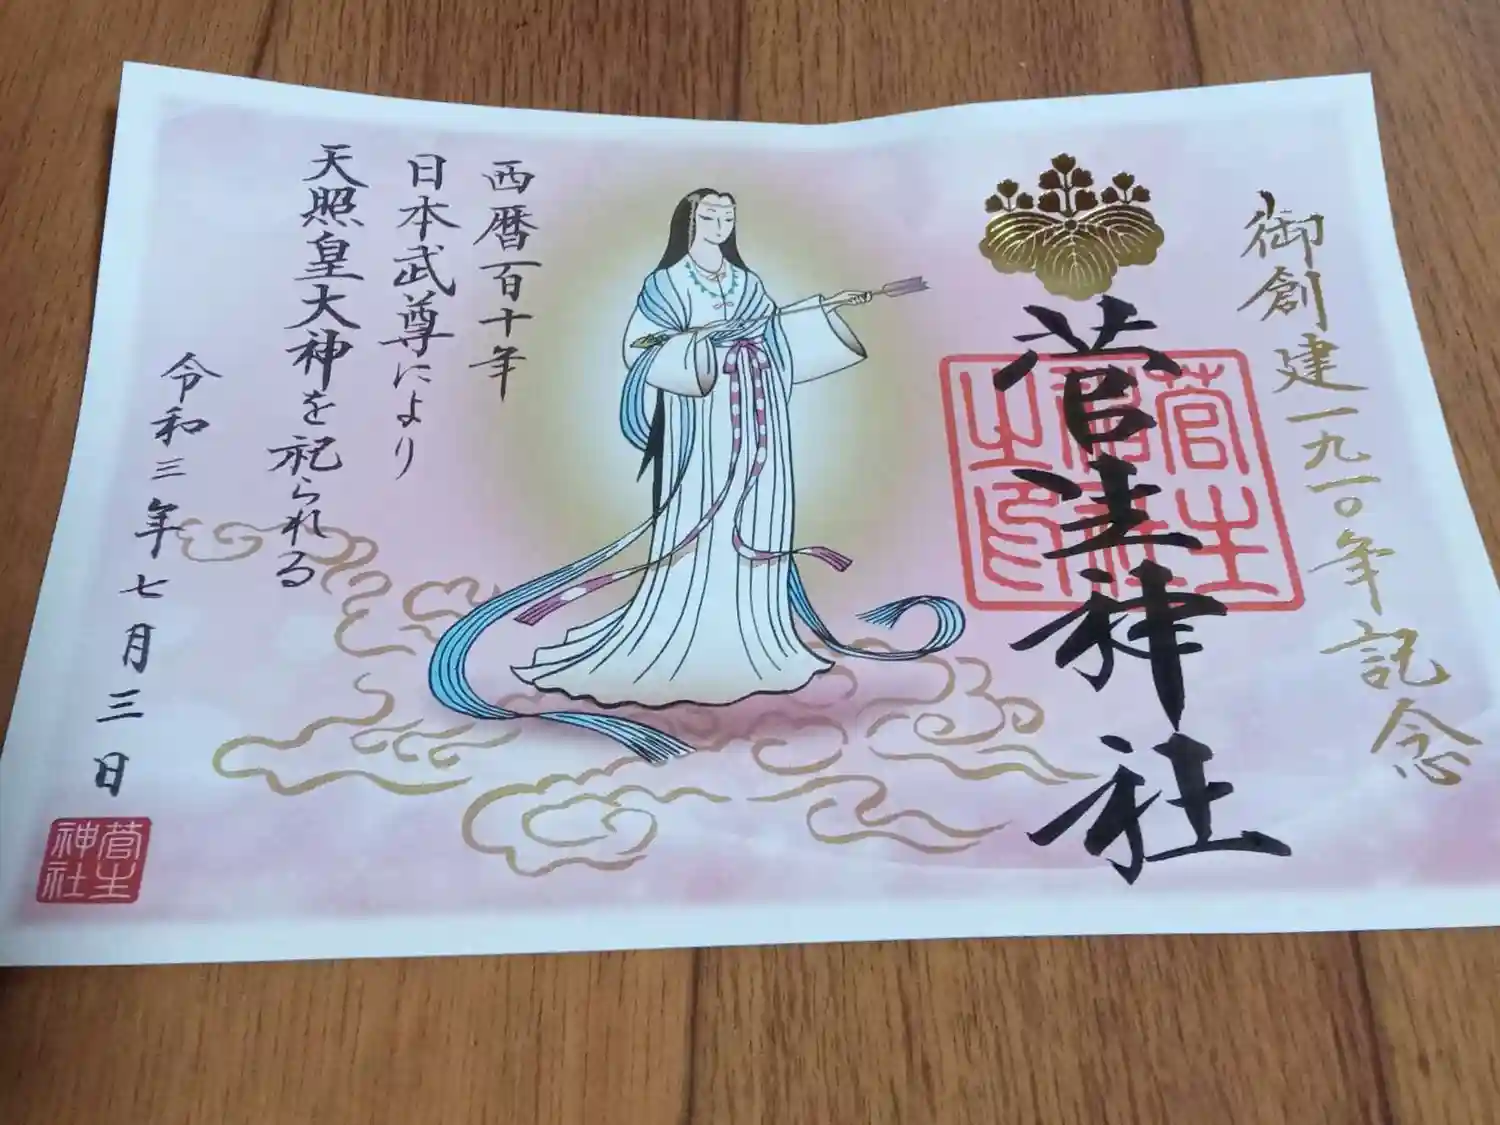 御創建一九一〇年記念
菅生神社
菅生神社之印
西暦百十年
日本武尊により
天照皇大神を祀られる
令和三年七月三日
菅生神社